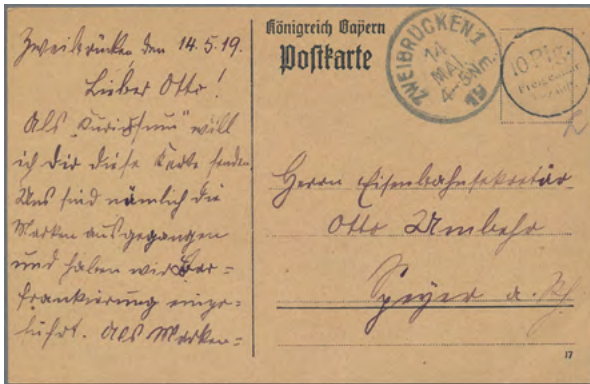 Zweibrücken, den 14.5.19.
Lieber Otto!
Als „Kuriosum" will
ich Dir diese Karte senden.
Uns sind nämlich die
Marken ausgegangen
und haben wir Bar=
frankierung einge=
führt. Als Marken=
Königreich Bayern
Postkarte
ZWEIBRÜCKEN 1
14
MAI
4-5 Nm.
19
10 Pfg.
Herrn Eisenbahnsekretär
Otto Umbehr
Speyer a. Rh
17